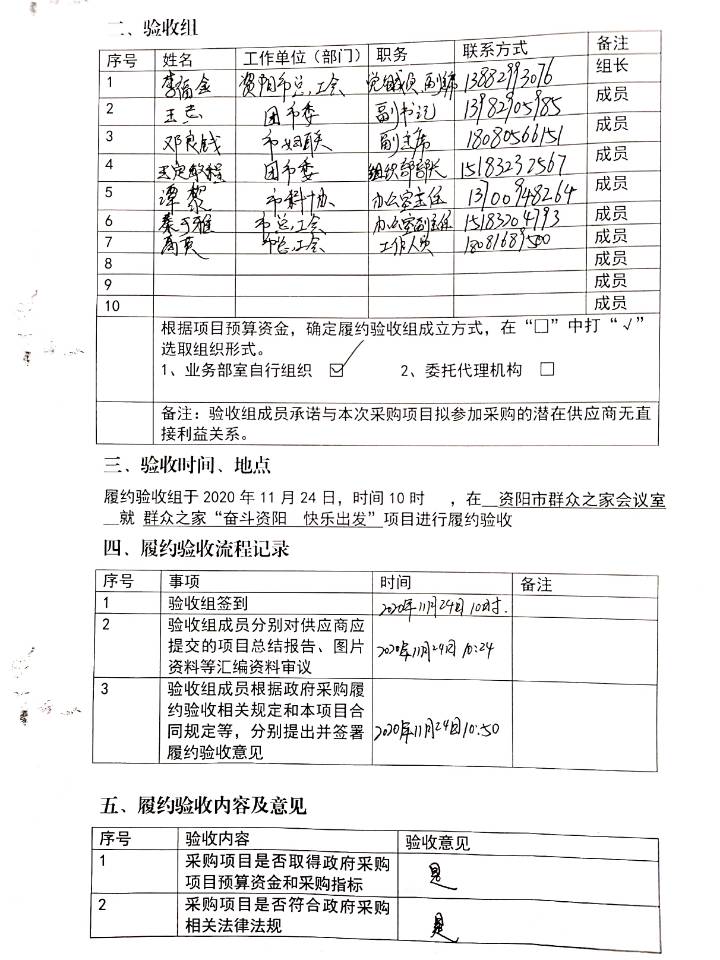 二、验收组
序号 姓名 工作单位（部门） 职务 联系方式 备注
1 资阳市总工会 13882993076 组长
2 王志 团市委 副书记 13982905985 成员
3 邓良钱 市妇联 副主席 18080566151 成员
4 团市委 组织部部长 15183232567 成员
5 谭黎 市科协 办公室主任 13100948264 成员
6 秦可雅 市总工会 办公室副主任 15183204793 成员
7 市总工会 工作人员 成员
8 成员
9 成员
10 成员
根据项目预算资金，确定履约验收组成立方式，在“□”中打“√”
选取组织形式。
1、业务部室自行组织 ☑ 2、委托代理机构 □
备注：验收组成员承诺与本次采购项目拟参加采购的潜在供应商无直
接利益关系。
三、验收时间、地点
履约验收组于 2020 年 11 月 24 日，时间 10 时 ，在 资阳市群众之家会议室
就 群众之家“奋斗资阳 快乐出发”项目进行履约验收
四、履约验收流程记录
序号 事项 时间 备注
1 验收组签到 2020年11月24日10时.
2 验收组成员分别对供应商应
提交的项目总结报告、图片 2020年11月24日 10:24
资料等汇编资料审议
3 验收组成员根据政府采购履
约验收相关规定和本项目合
同规定等，分别提出并签署 2020年11月24日10:50
履约验收意见
五、履约验收内容及意见
序号 验收内容 验收意见
1 采购项目是否取得政府采购 是
项目预算资金和采购指标
2 采购项目是否符合政府采购 是
相关法律法规